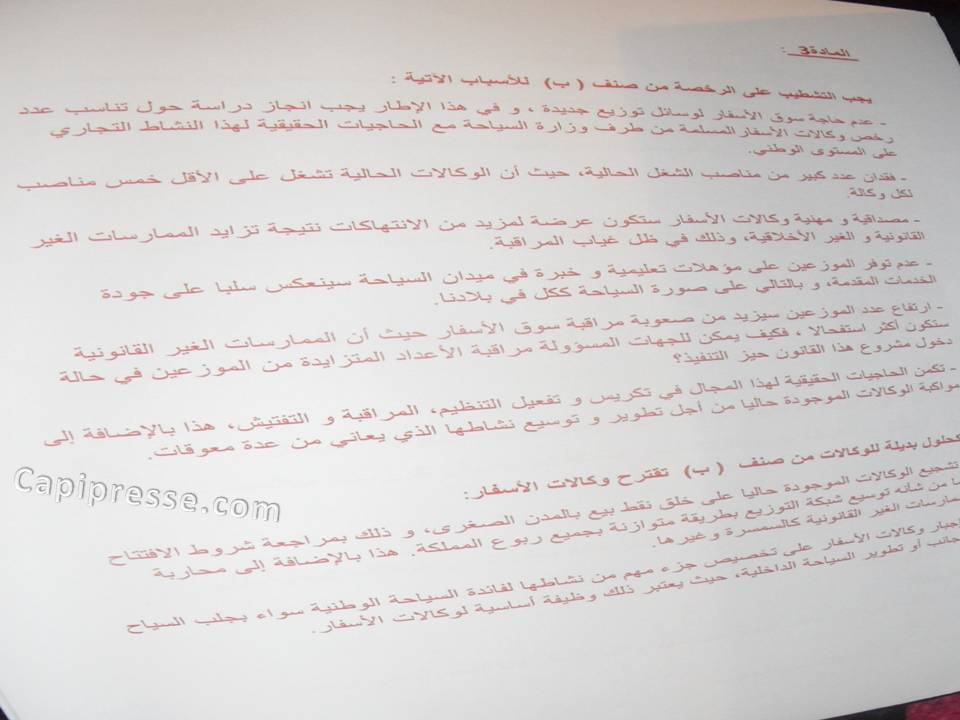 المادة3 :
يجب التشطيب على الرخصة من صنف ( ب ) للأسباب الآتية :
- عدم حاجة سوق الأسفار لوسائل توزيع جديدة ، و في هذا الإطار يجب انجاز دراسة حول تناسب عدد
رخص وكالات الأسفار المسلمة من طرف وزارة السياحة مع الحاجيات الحقيقية لهذا النشاط التجاري
على المستوى الوطني.
- فقدان عدد كبير من مناصب الشغل الحالية، حيث أن الوكالات الحالية تشغل على الأقل خمس مناصب
لكل وكالة.
- مصداقية و مهنية وكالات الأسفار ستكون عرضة لمزيد من الانتهاكات نتيجة تزايد الممارسات الغير
القانونية و الغير الأخلاقية، وذلك في ظل غياب المراقبة.
- عدم توفر الموزعين على مؤهلات تعليمية و خبرة في ميدان السياحة سينعكس سلبا على جودة
الخدمات المقدمة، و بالتالي على صورة السياحة ككل في بلادنا.
- ارتفاع عدد الموزعين سيزيد من صعوبة مراقبة سوق الأسفار حيث أن الممارسات الغير القانونية
ستكون أكثر استفحالا ، فكيف يمكن للجهات المسؤولة مراقبة الأعداد المتزايدة من الموزعين في حالة
دخول مشروع هذا القانون حيز التنفيذ؟
- تكمن الحاجيات الحقيقية لهذا المجال في تكريس و تفعيل التنظيم، المراقبة و التفتيش، هذا بالإضافة إلى
مواكبة الوكالات الموجودة حاليا من أجل تطوير و توسيع نشاطها الذي يعاني من عدة معوقات.
كحلول بديلة للوكالات من صنف ( ب ) تقترح وكالات الأسفار:
تشجيع الوكالات الموجودة حاليا على خلق نقط بيع بالمدن الصغرى، و ذلك بمراجعة شروط الافتتاح
من شأنه توسيع شبكة التوزيع بطريقة متوازنة بجميع ربوع المملكة. هذا بالإضافة إلى محاربة
الغير القانونية كالسمسرة وغيرها.
وكالات الأسفار على تخصيص جزء مهم من نشاطها لفائدة السياحة الوطنية سواء بجلب السياح
أو تطوير السياحة الداخلية، حيث يعتبر ذلك وظيفة أساسية لوكالات الأسفار.
Capipresse.com